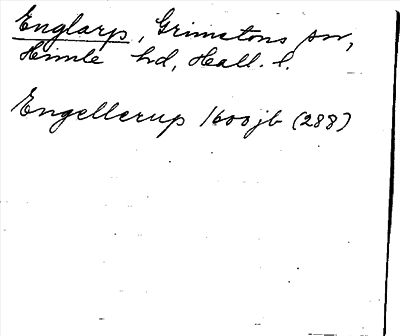 Englarp, Grimetons sn,
Himle hd, Hall. l.
Engellerup 1600 jb (288)